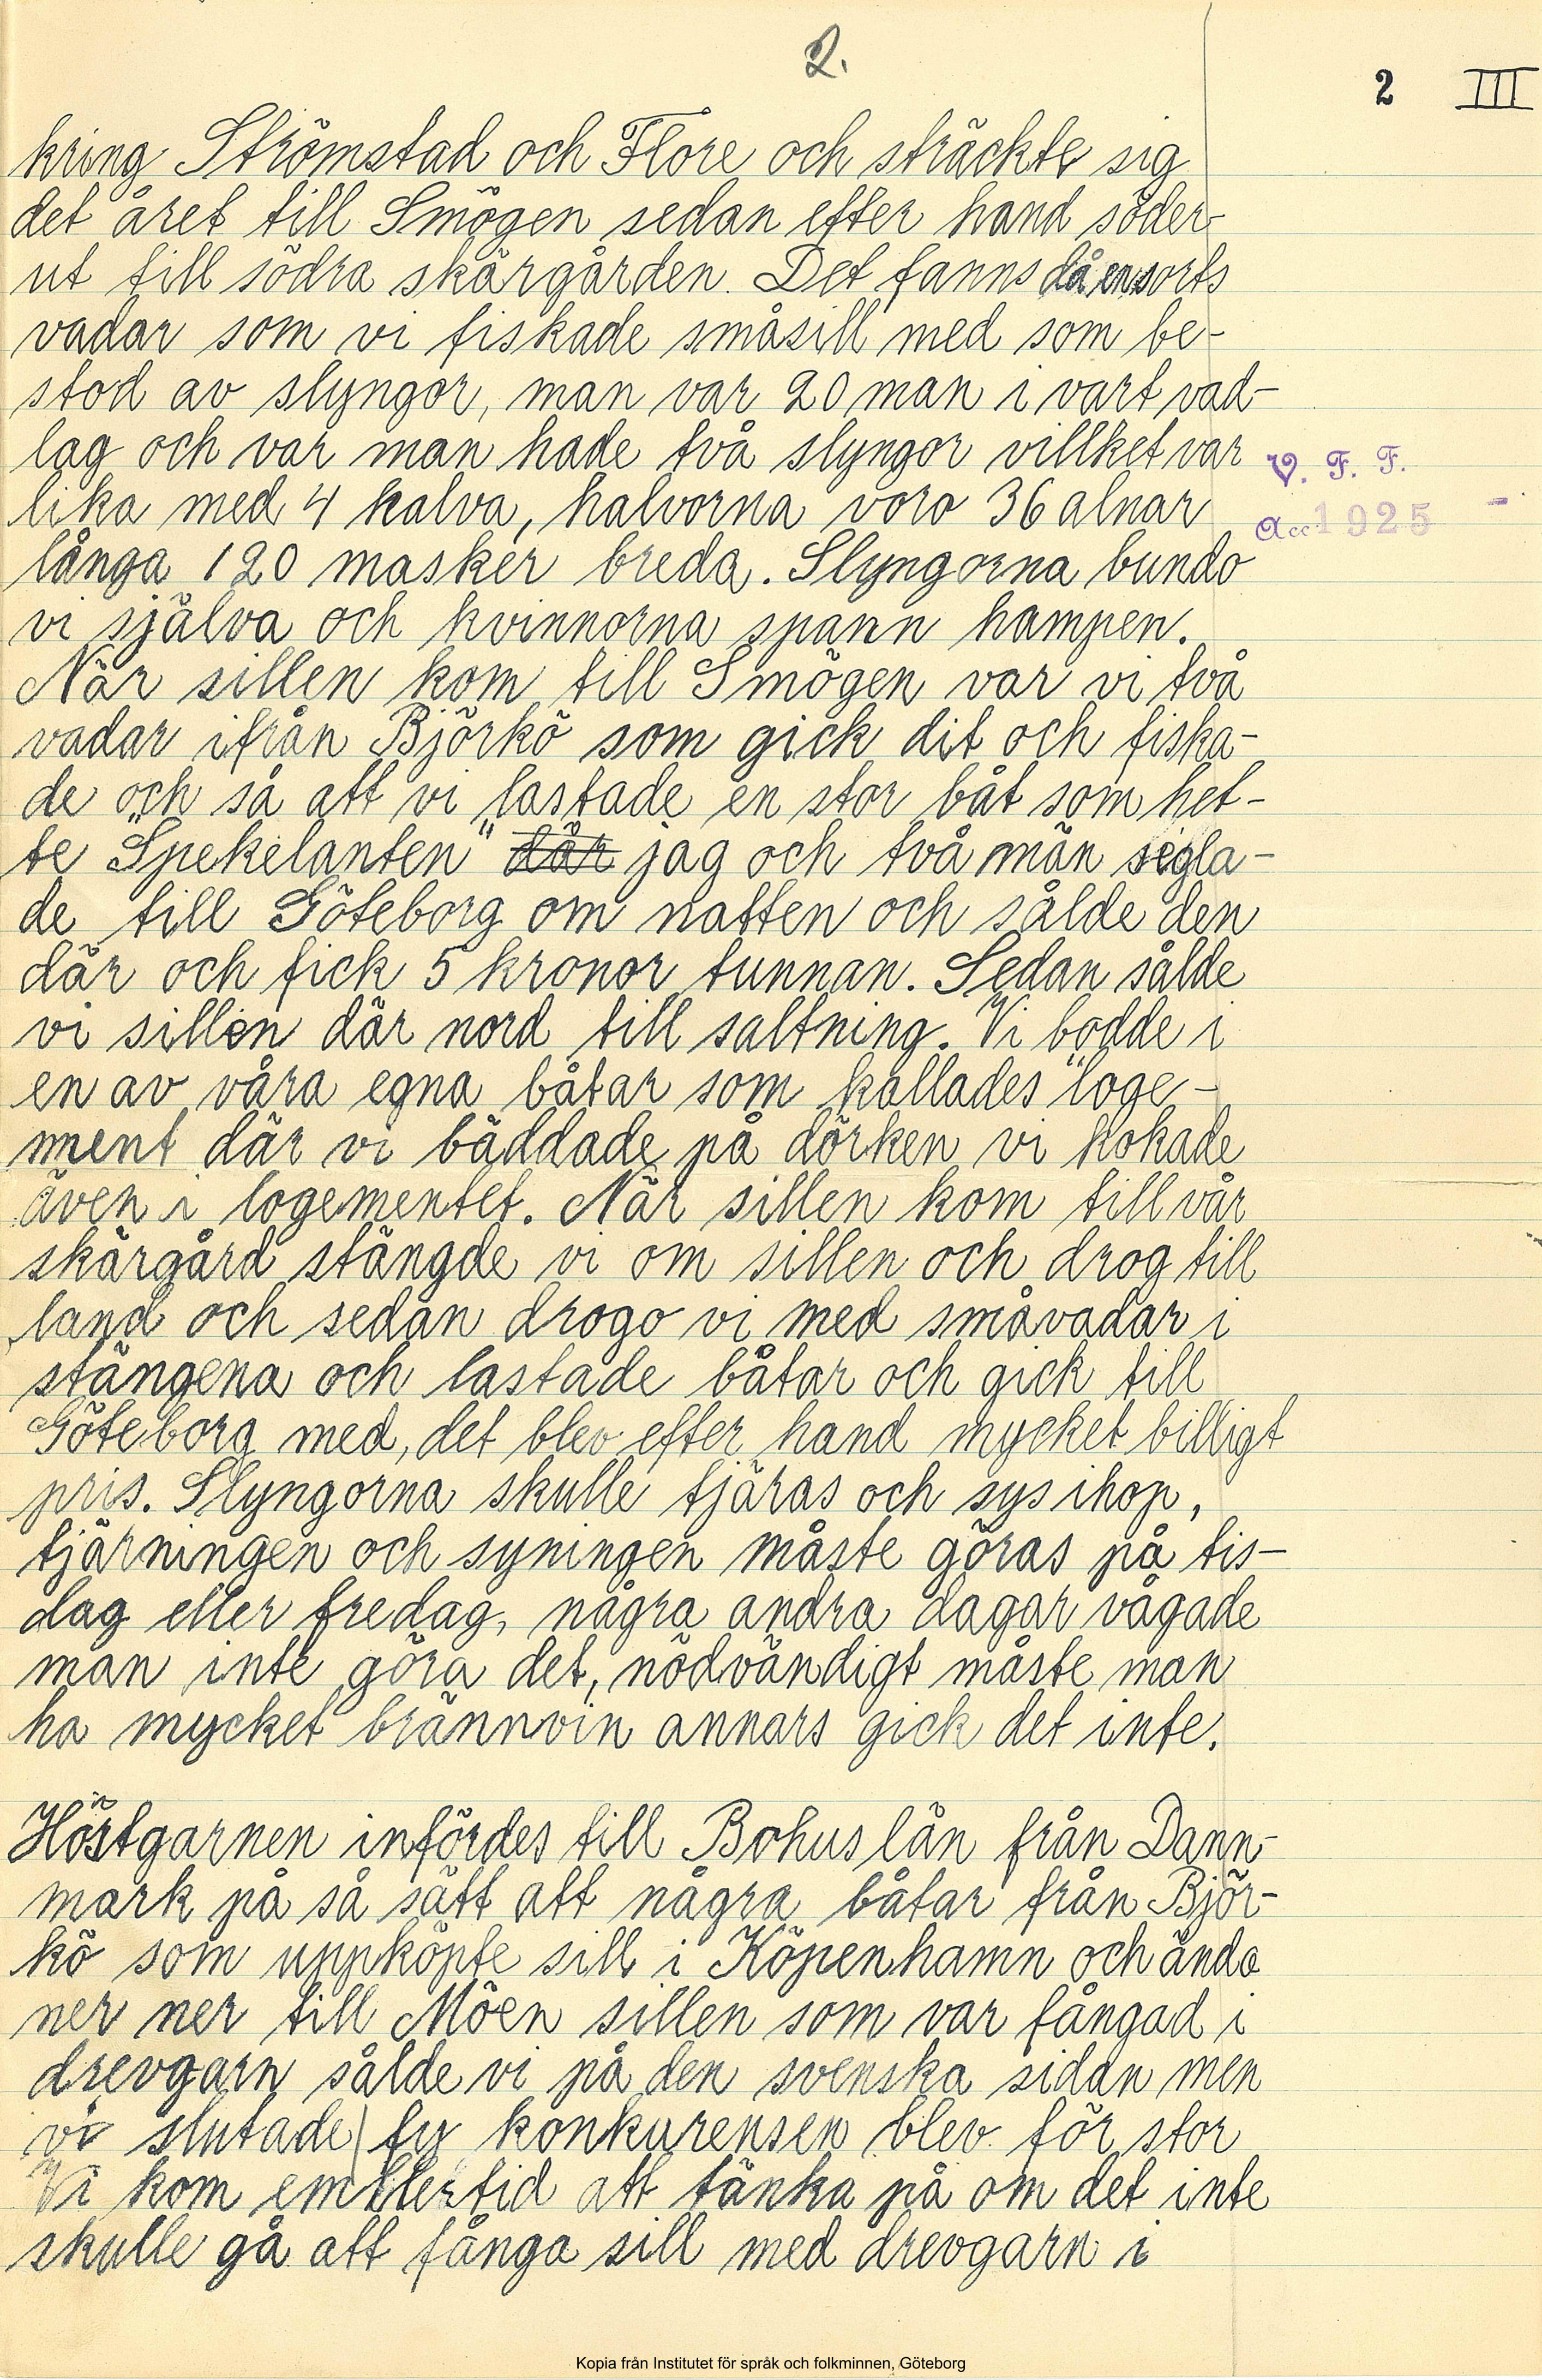 2.
2 III
kring Strömstad och Flore och sträckte sig
det året till Smögen sedan efter hand söder-
ut till södra skärgården. Det fanns då en sorts
vadar som vi fiskade småsill med som be-
stod av slyngor, man var 20 man i vart vad-
lag och var man hade två slyngor villket var
V. F. F.
lika med 4 kalva, halvorna voro 36 alnar
Acc 1925
långa 120 masker breda. Slyngorna bundo
vi själva och kvinnorna spann hampen.
När sillen kom till Smögen var vi två
vadar ifrån Björkö som gick dit och fiska-
de och så att vi lastade en stor båt som het-
te "Spekelanten" där jag och två män segla-
de till Göteborg om natten och sålde den
där och fick 5 kronor tunnan. Sedan sålde
vi sillen där nord till saltning. Vi bodde i
en av våra egna båtar som kallades "loge-
ment där vi bäddade på dörken vi kokade
även i logementet. När sillen kom till vår
skärgård stängde vi om sillen och drog till
land och sedan drogo vi med småvadar i
stängena och lastade båtar och gick till
Göteborg med, det blev efter hand mycket billigt
pris. Slyngorna skulle tjäras och sys ihop,
tjärningen och syningen måste göras på tis-
dag eller fredag, några andra dagar vågade
man inte göra det, nödvändigt måste man
ha mycket brännvin annars gick det inte.
Höstgarnen infördes till Bohuslän från Dann-
mark på så sätt att några båtar från Björ-
kö som uppköpte sill i Köpenhamn och ända
ner ner till Möen sillen som var fångad i
drevgarn sålde vi på den svenska sidan men
vi slutade ty konkurensen blev för stor
Vi kom emellertid att tänka på om det inte
skulle gå att fånga sill med drevgarn i
Kopia från Institutet för språk och folkminnen, Göteborg